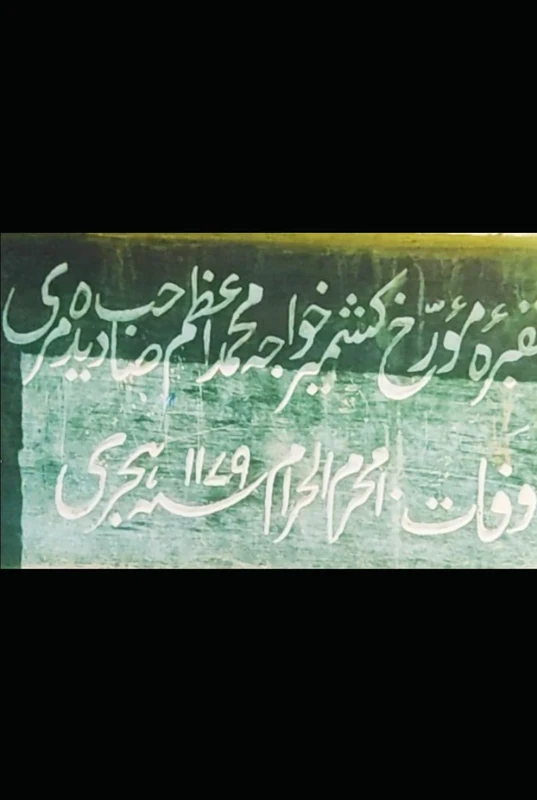 مقبرۂ مؤرّخ کشمیر خواجہ محمد اعظم صاحب دیدہ مری
وفات ۱۰ محرم الحرام ۱۱۷۹ سنہ ہجری